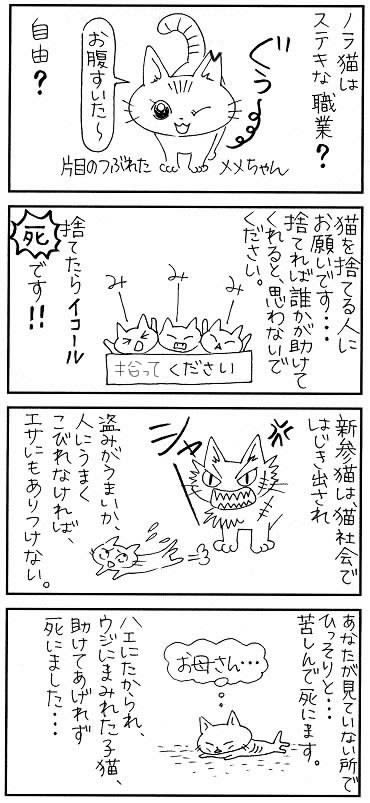 ノラ猫は
ステキな職業？
ぐぅ
お腹すいた〜
自由？
片目のつぶれた メメちゃん
猫を捨てる人に
お願いです・・・
捨てれば誰かが助けて
くれると、思わないで
ください。
み
み
み
拾ってください
捨てたらイコール
死です！！
新参猫は、猫社会で
はじき出され
シャー
盗みがうまいか、
人にうまく
こびれなければ、
エサにもありつけない。
あなたが見ていない所で
ひっそりと・・・
苦しんで死にます。
お母さん・・・
ハエにたかられ、
ウジにまみれた子猫、
助けてあげれず
死にました・・・